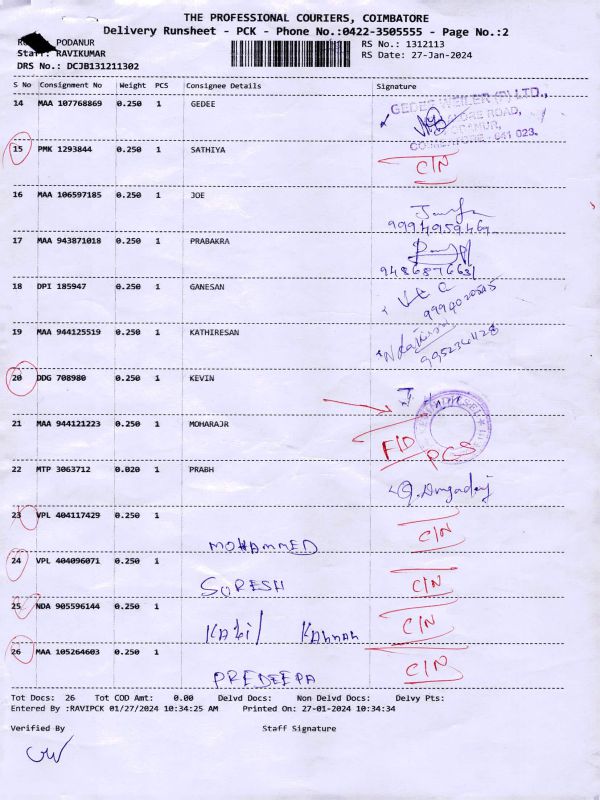 THE PROFESSIONAL COURIERS, COIMBATORE
Delivery Runsheet - PCK - Phone No.:0422-3505555 - Page No.:2
PODANUR RS No.: 1312113
Staff: RAVIKUMAR RS Date: 27-Jan-2024
DRS No.: DCJB131211302
S No Consignment No Weight PCS Consignee Details Signature
14 MAA 107768869 0.250 1 GEDEE
GEDEE WEILER (P) LTD.,
ROAD,
COIMBATORE - 641 023.
15 PMK 1293844 0.250 1 SATHIYA C/N
16 MAA 106597185 0.250 1 JOE
9994959469
17 MAA 943871018 0.250 1 PRABAKRA
9486876631
18 DPI 185947 0.250 1 GANESAN
19 MAA 944125519 0.250 1 KATHIRESAN
20 DDG 708980 0.250 1 KEVIN
21 MAA 944121223 0.250 1 MOHARAJR
PCS
22 MTP 3063712 0.020 1 PRABH
23 VPL 404117429 0.250 1 MOHAMMED C/N
24 VPL 404096071 0.250 1 SURESH C/N
25 NDA 905596144 0.250 1 C/N
26 MAA 105264603 0.250 1 PREDEEPA C/N
Tot Docs: 26 Tot COD Amt: 0.00 Delvd Docs: Non Delvd Docs: Delvy Pts:
Entered By :RAVIPCK 01/27/2024 10:34:25 AM Printed On: 27-01-2024 10:34:34
Verified By Staff Signature